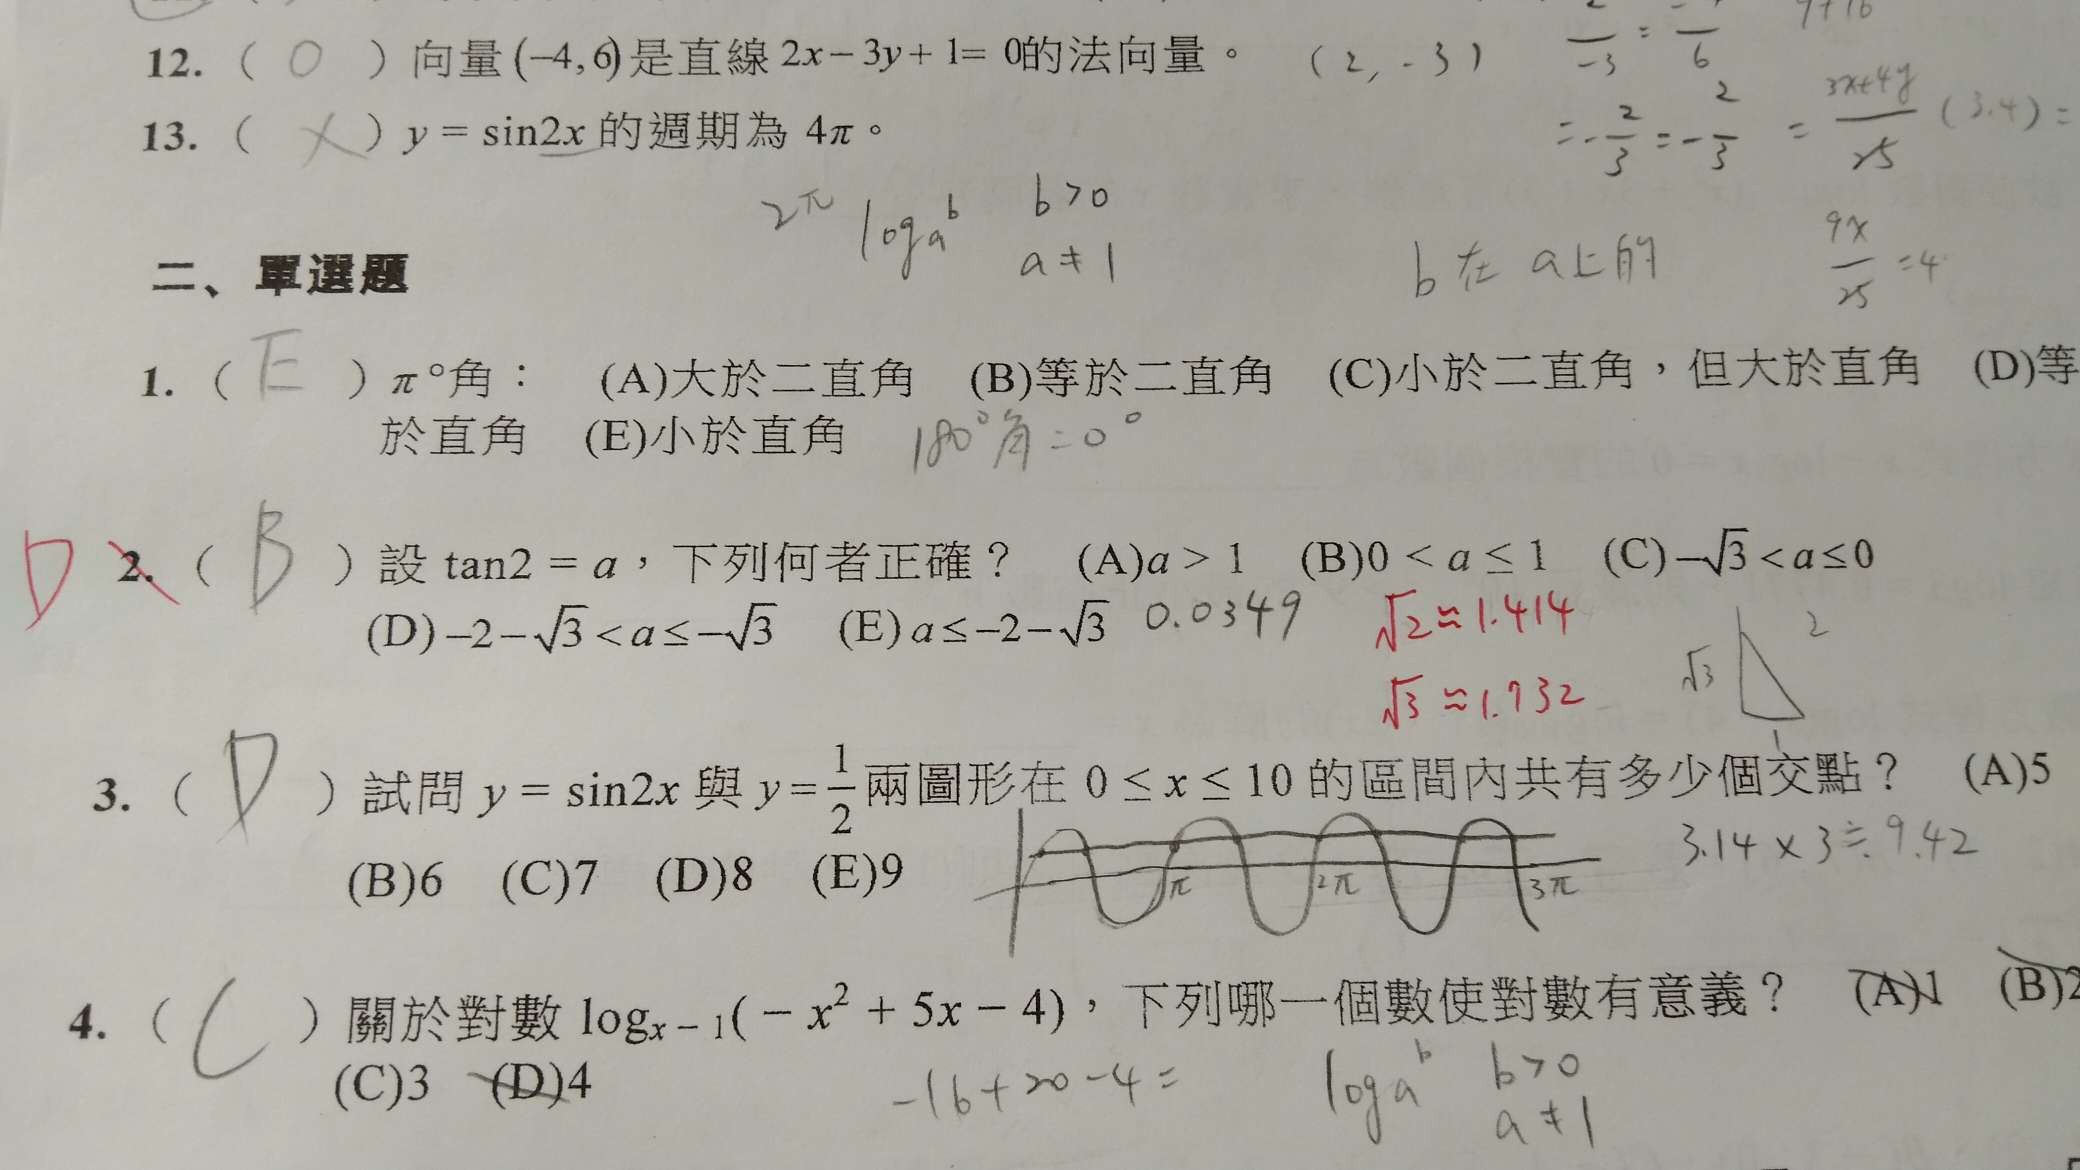 12. ( O ) 向量(-4, 6)是直線 2x-3y+1= 0的法向量。 (2, -3)
13. ( X ) y = sin2x 的週期為 4π。
2π log_a^b b>0
a≠1
b在a上的
9x/25 =4
3x+4y/25 (3.4) =
二、單選題
1. ( E ) π°角： (A)大於二直角 (B)等於二直角 (C)小於二直角，但大於直角 (D)等
於直角 (E)小於直角 180°角=0°
D 2. ( B ) 設 tan2 = a，下列何者正確？ (A)a > 1 (B)0 < a ≤ 1 (C)-√3 < a ≤ 0
(D) -2-√3 < a ≤ -√3 (E) a ≤ -2-√3 0.0349 √2≈1.414
√3≈1.732 √3 2 1
3. ( D ) 試問 y = sin2x 與 y=1/2 兩圖形在 0 ≤ x ≤ 10 的區間內共有多少個交點？ (A)5
(B)6 (C)7 (D)8 (E)9 π 2π 3π 3.14×3≒9.42
4. ( C ) 關於對數 log_{x-1}(-x²+5x-4)，下列哪一個數使對數有意義？ (A)1 (B)2
(C)3 (D)4 -16+20-4= log_a^b b>0
a≠1